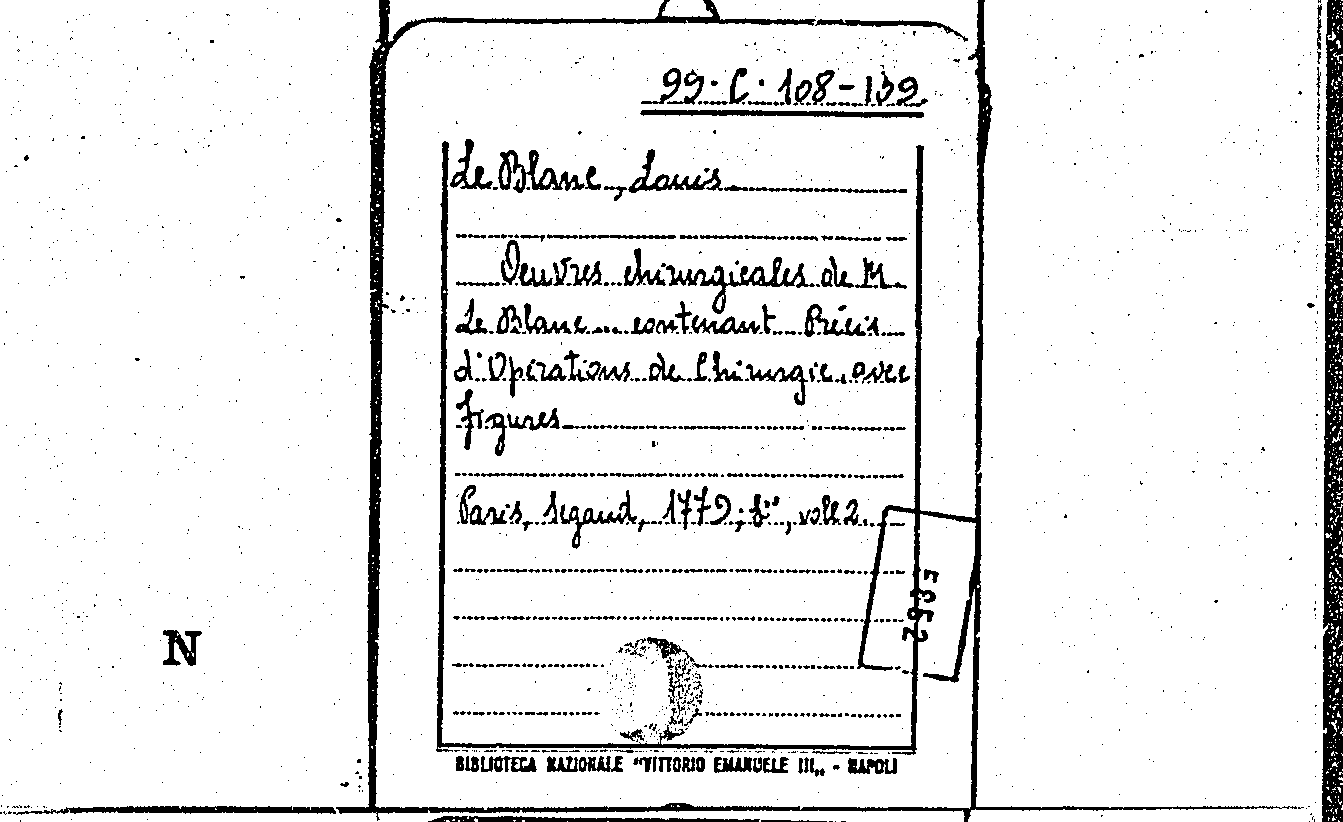 99.C.108-139
Le Blanc, Louis
Oeuvres chirurgicales de M.
Le Blanc... contenant Précis
d'Opérations de Chirurgie, avec
figures
Paris, Segaud, 1779; 8°, voll 2.
N
BIBLIOTECA NAZIONALE "VITTORIO EMANUELE III„ - NAPOLI